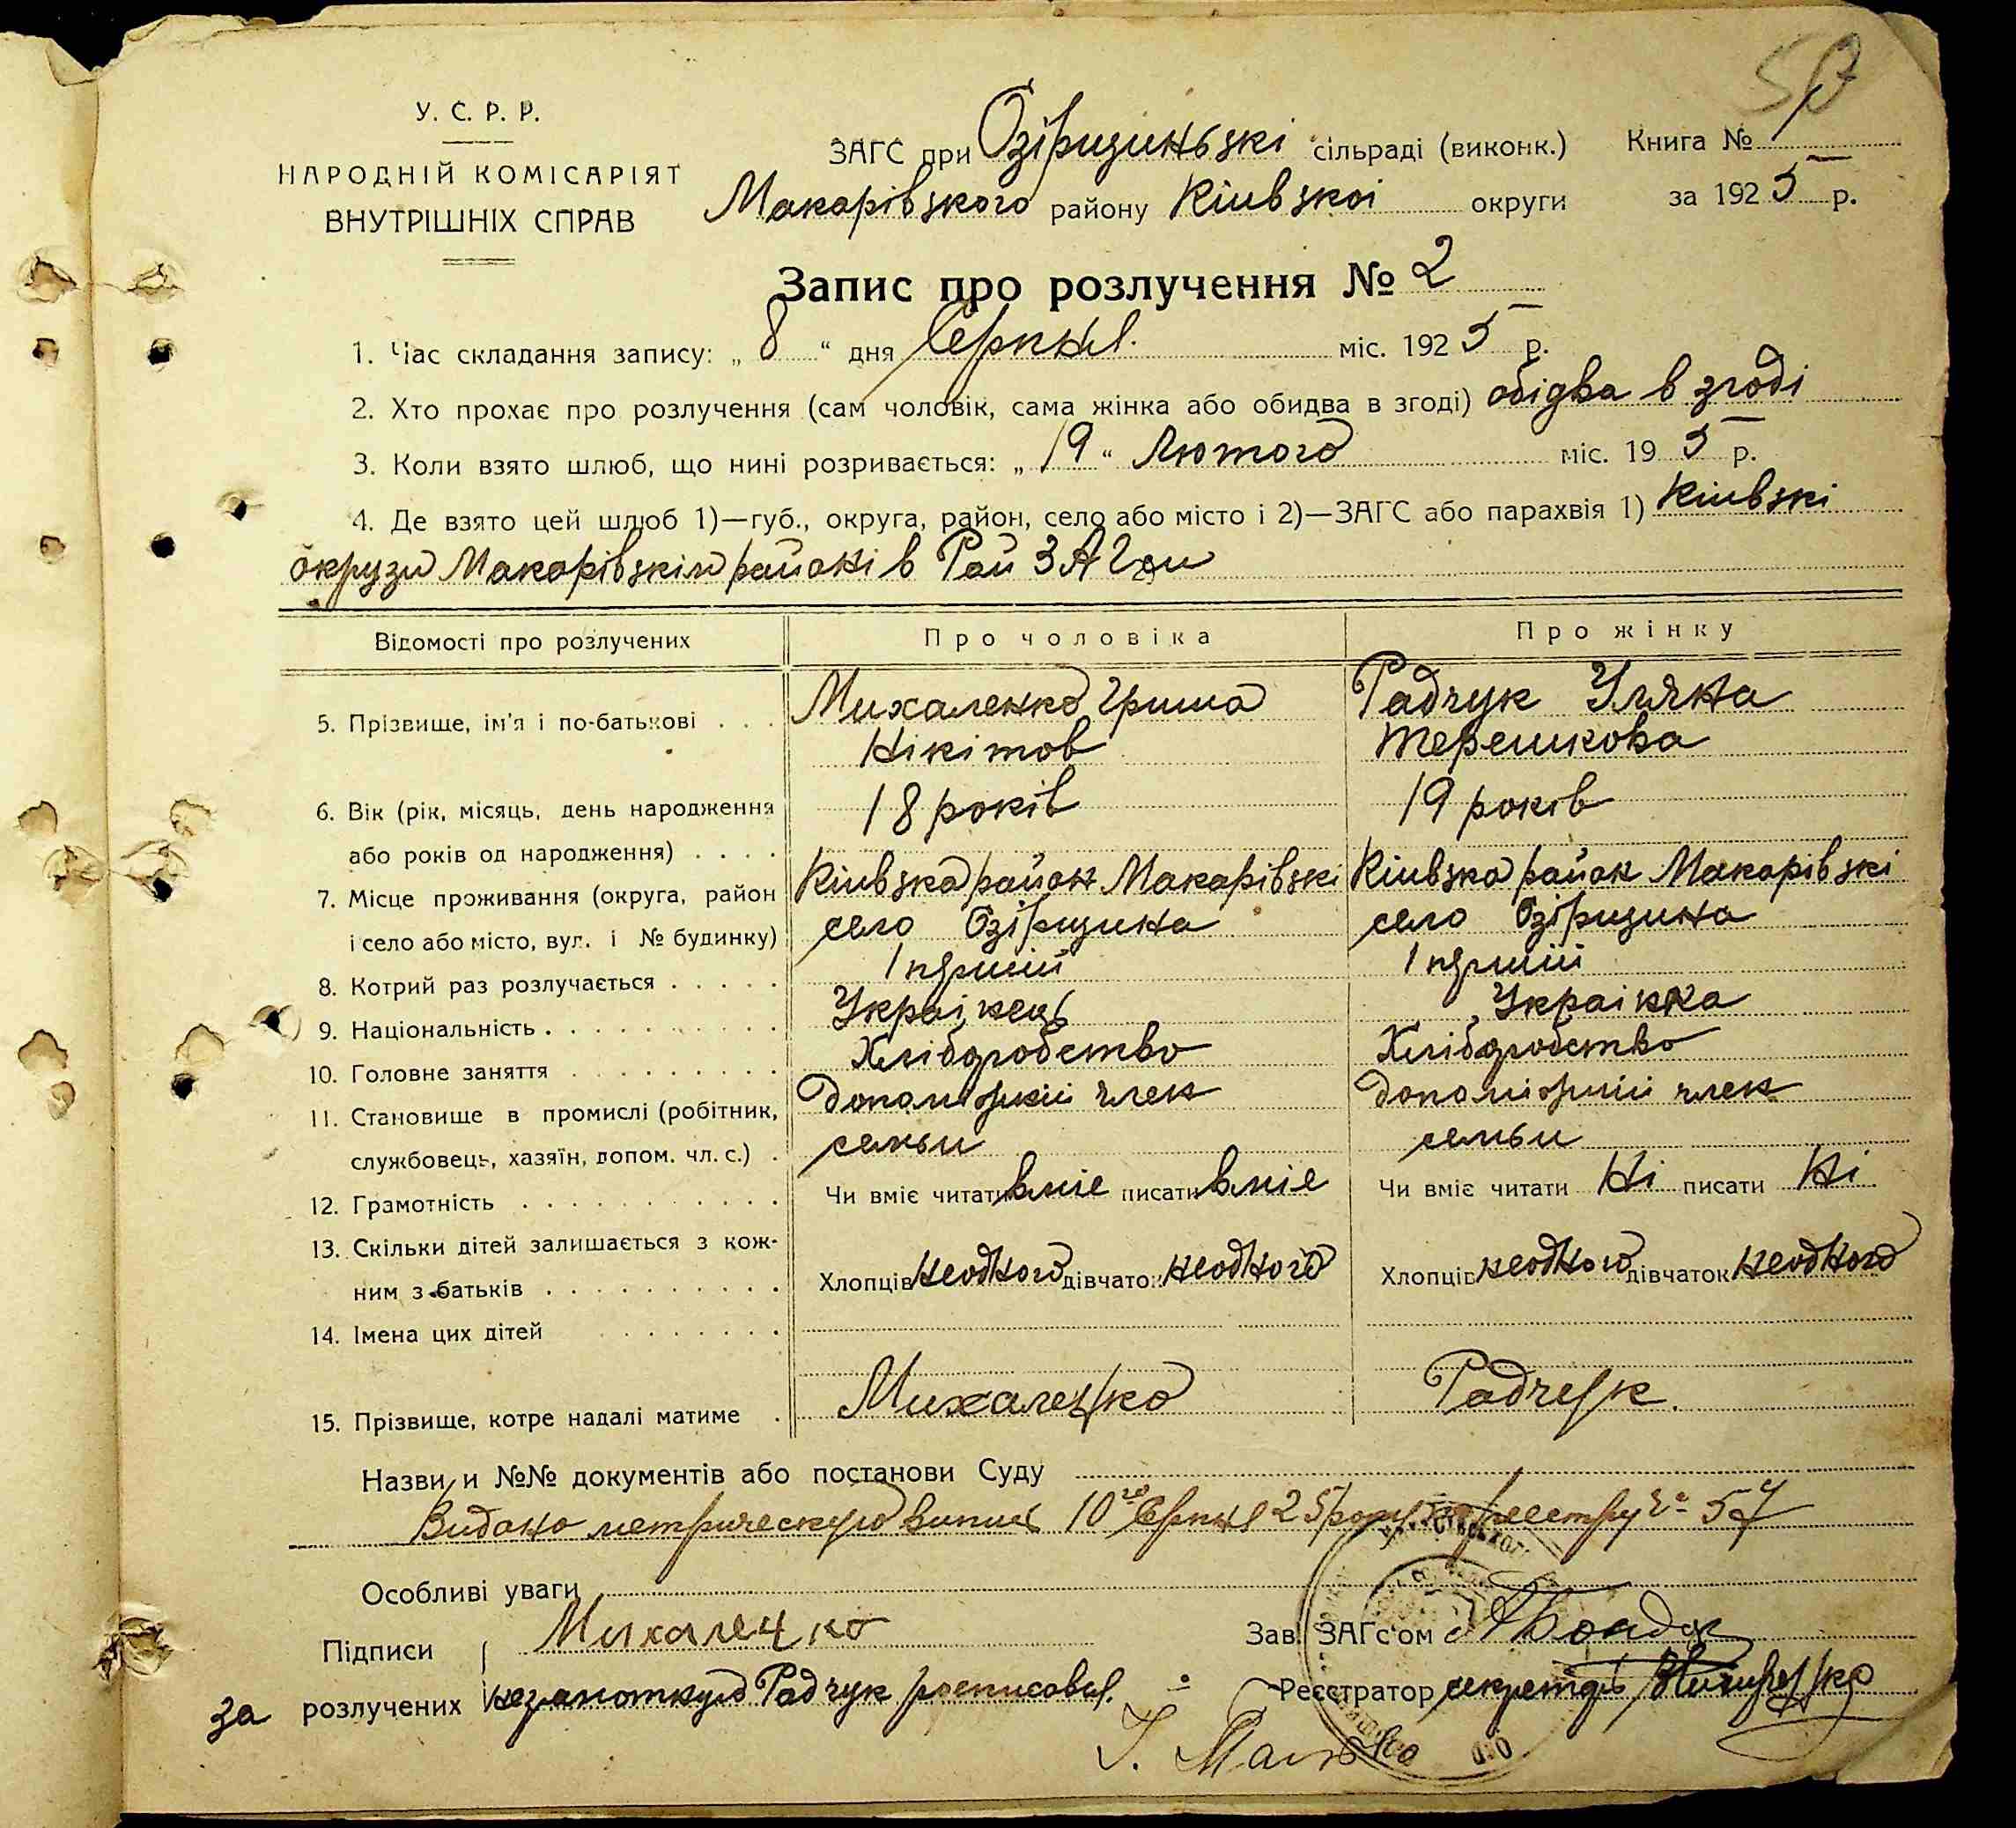 50
У. С. Р. Р.
НАРОДНІЙ КОМІСАРІЯТ
ВНУТРІШНІХ СПРАВ
ЗАГС при Озірщиньскі сільраді (виконк.) Книга №
Макарівского району Кіивскоі округи за 1925 р.
Запис про розлучення № 2
1. Час складання запису: „ 8 “ дня Серпня. міс. 1925 р.
2. Хто прохає про розлучення (сам чоловік, сама жінка або обидва в згоді) обідва в згоді
3. Коли взято шлюб, що нині розривається: „ 19 “ Лютого міс. 19 5 р.
4. Де взято цей шлюб 1)—губ., округа, район, село або місто і 2)—ЗАГС або парахвія 1) Кіивскі
округи Макарівскім районі в Рай ЗАГси
Відомості про розлучених Про чоловіка Про жінку
5. Прізвище, ім'я і по-батькові . . . Михаленко Гриша Радчук Уляна
Нікітов Терешкова
6. Вік (рік, місяць, день народження 18 років 19 років
або років од народження) . . . .
7. Місце проживання (округа, район Кіивска район Макарівскі Кіивска район Макарівскі
і село або місто, вул. і № будинку) село Озірщина село Озірщина
8. Котрий раз розлучається . . . . . 1 перший 1 перший
9. Національність . . . . . . . . . . Украінець Украінка
10. Головне заняття . . . . . . . . . Хліборобство Хліборобство
11. Становище в промислі (робітник, допоміжний член допоміжний член
службовець, хазяїн, допом. чл. с.) . семьи семьи
12. Грамотність . . . . . . . . . . . Чи вміє читати вміе писати вміе Чи вміє читати Ні писати Ні
13. Скільки дітей залишається з кож-
ним з батьків . . . . . . . . . . Хлопців неодного дівчаток неодного Хлопців неодного дівчаток неодного
14. Імена цих дітей . . . . . . . .
15. Прізвище, котре надалі матиме . Михаленко Радчук.
Назви и №№ документів або постанови Суду
Видано метрическую випись 10го Серпня 25 року по реестру № 57
Особливі уваги
Підписи Михаленко Зав. ЗАГс'ом
за розлучених Радчук росписався. Реєстратор секретарь